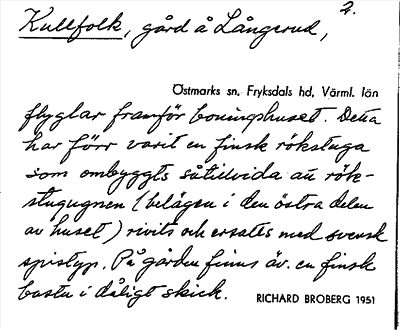 2.
Kullfolk, gård å Långerud,
Östmarks sn. Fryksdals hd, Värml. län
flyglar framför boningshuset. Detta
har förr varit en finsk rökstuga
som ombyggts såtillvida att rök-
stugugnen (belägen i den östra delen
av huset) rivits och ersatts med svensk
spistyp. På gården finns äv. en finsk
bastu i dåligt skick. RICHARD BROBERG 1951